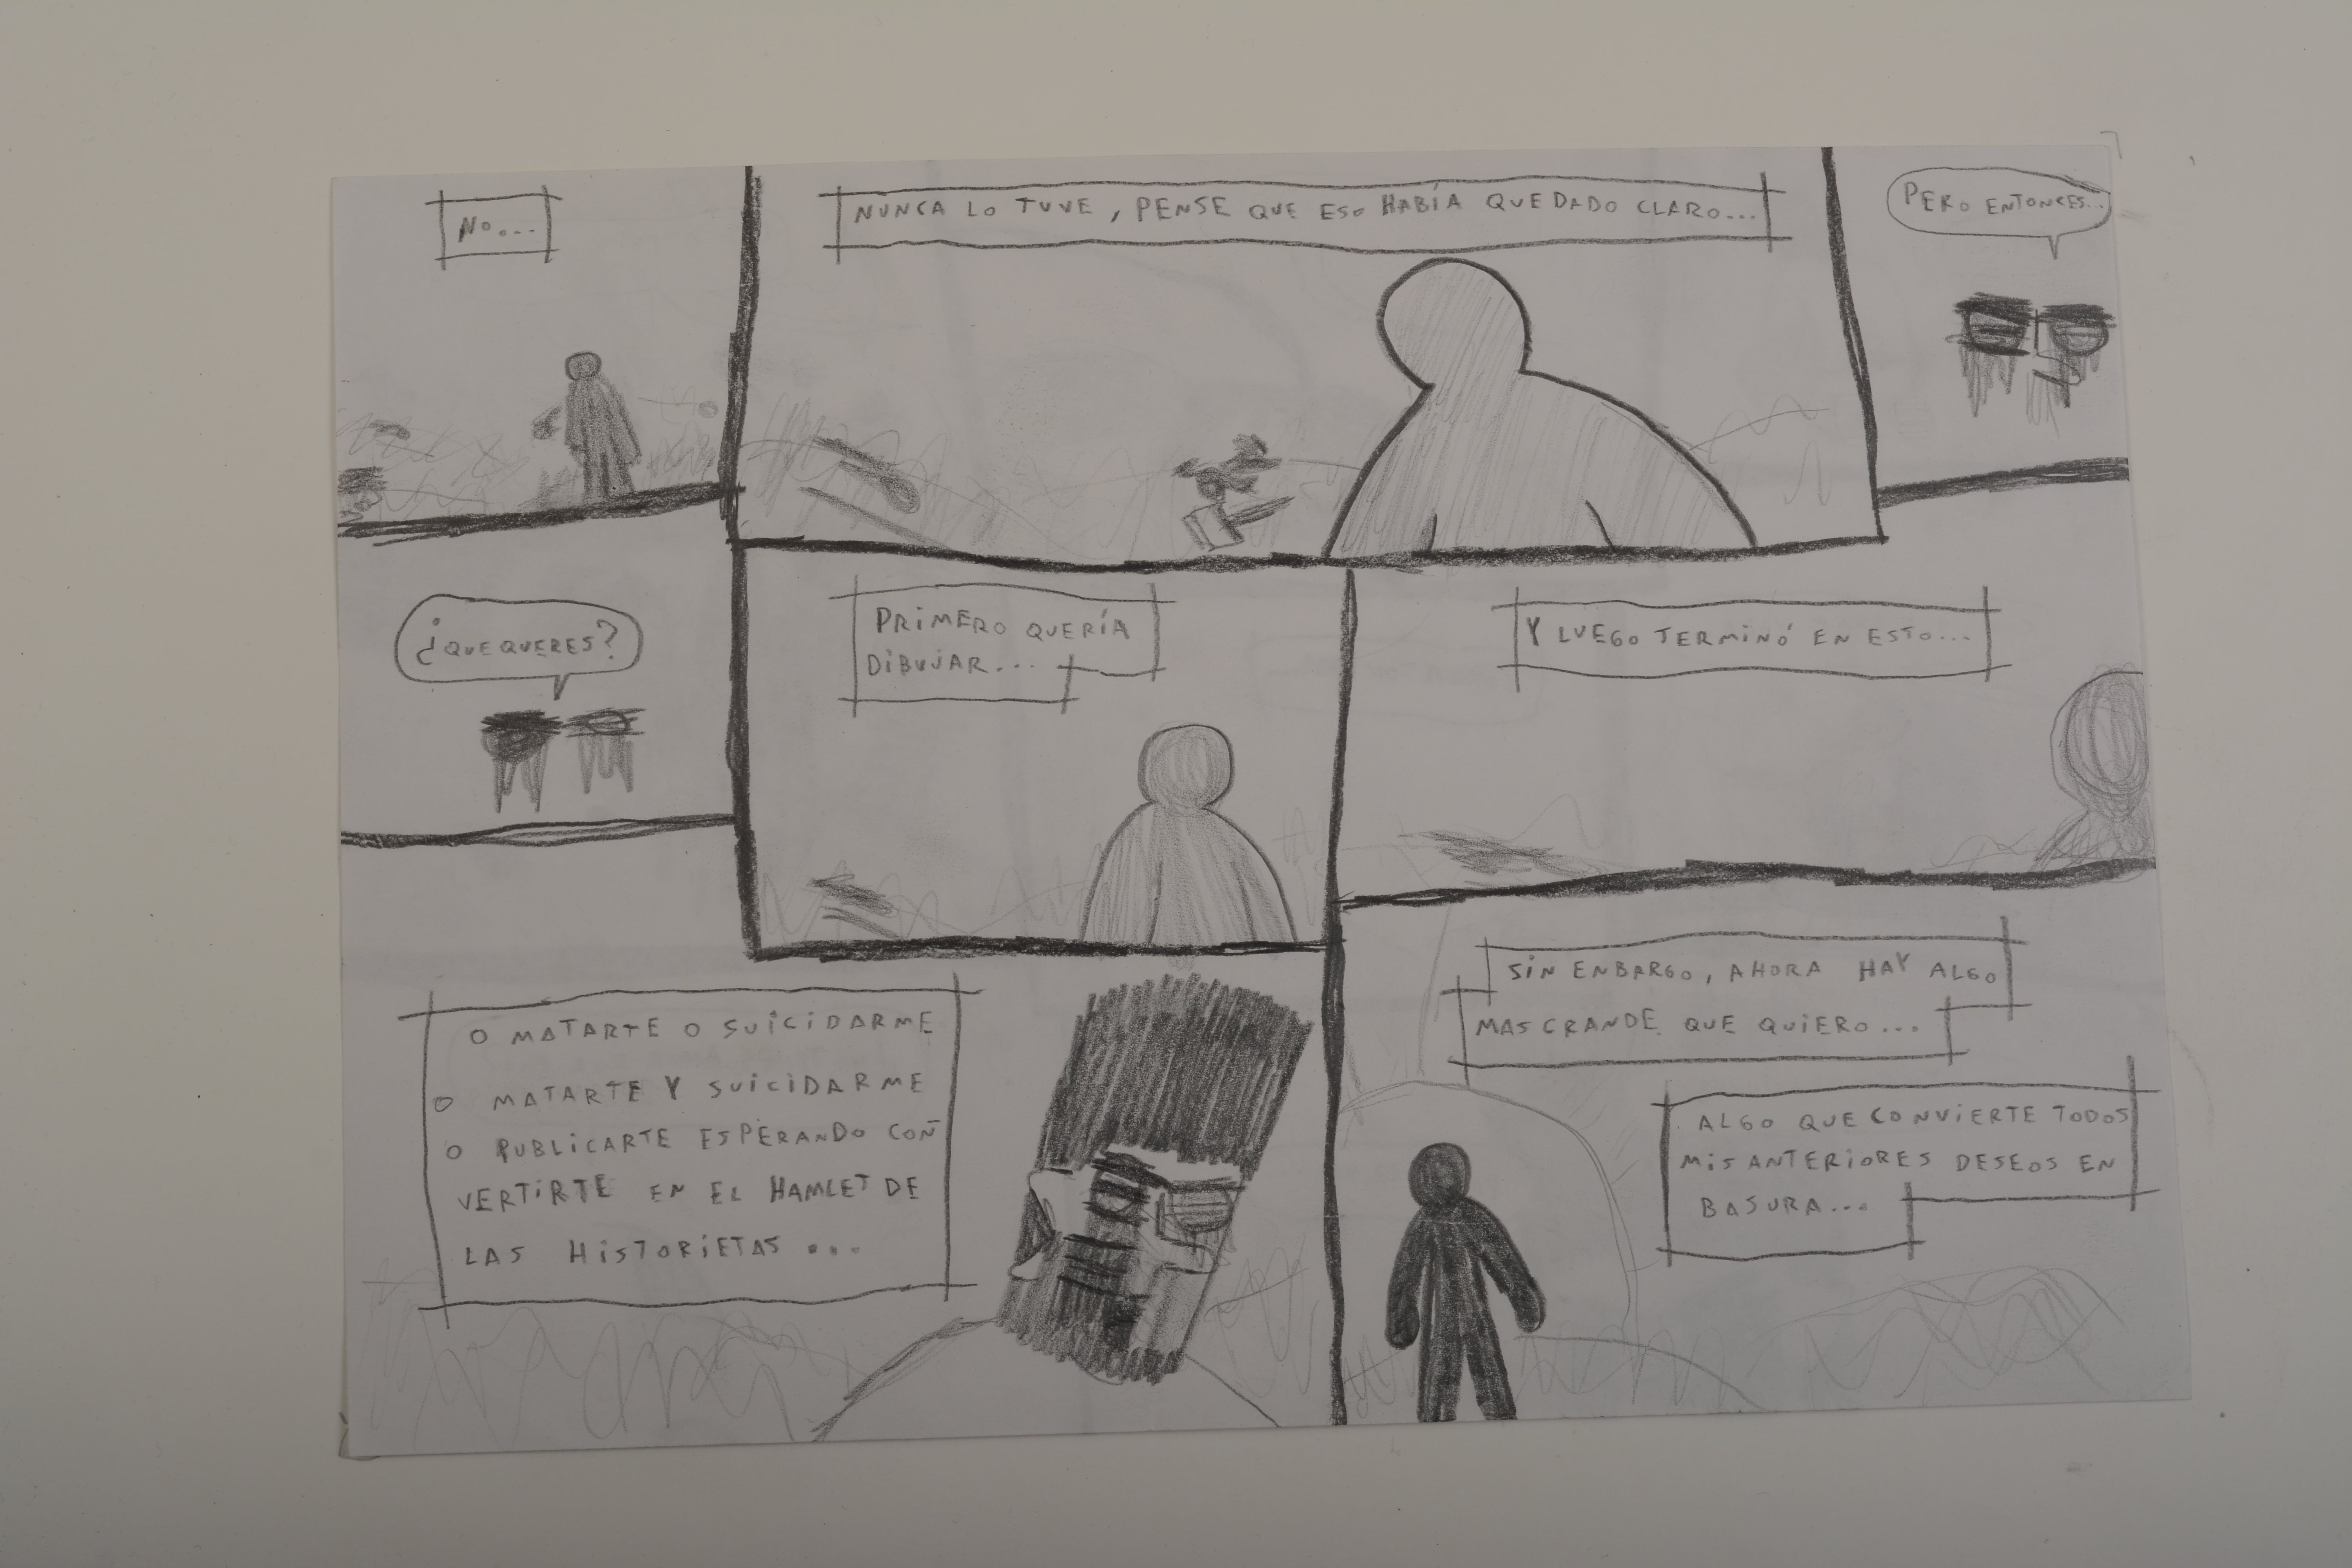 NO...
NUNCA LO TUVE, PENSE QUE ESO HABÍA QUEDADO CLARO...
PERO ENTONCES...
¿QUE QUERES?
PRIMERO QUERÍA
DIBUJAR...
Y LUEGO TERMINÓ EN ESTO...
O MATARTE O SUICIDARME
O MATARTE Y SUICIDARME
O PUBLICARTE ESPERANDO CON
VERTIRTE EN EL HAMLET DE
LAS HISTORIETAS...
SIN ENBARGO, AHORA HAY ALGO
MAS GRANDE QUE QUIERO...
ALGO QUE CONVIERTE TODOS
MIS ANTERIORES DESEOS EN
BASURA...